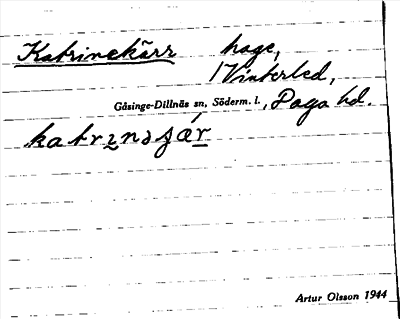 Katrinekärr hage,
Vinterled,
Gåsinge-Dillnäs sn, Söderm. l., Daga hd.
katrınəʃǽr
Artur Olsson 1944